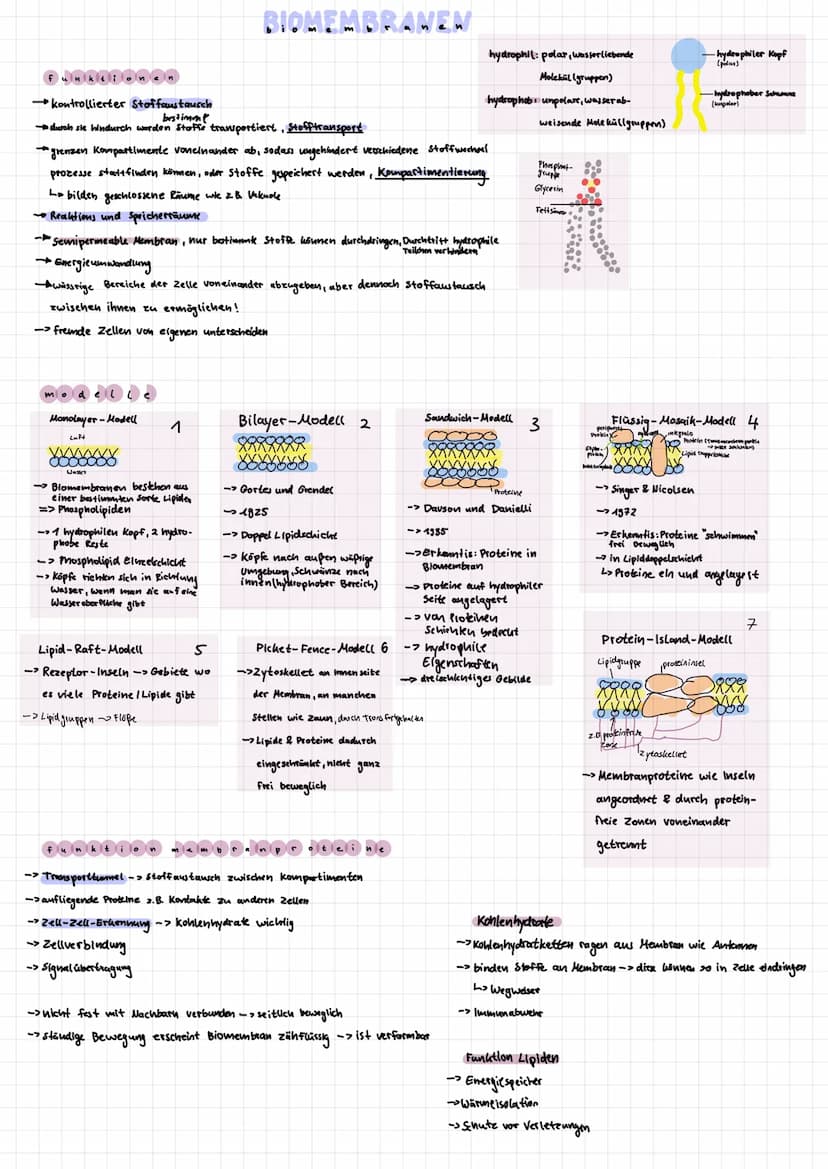 BIOMEMBRANEN
biomembranen
hydrophil: polar, wasserliebende
Molekülgruppen)
hydrophob: unpolare, wasserab-
weisende Molekülgruppen)
hydrophiler Kopf
(polar)
hydrophober Schwanz
(unpolar)
funktionen
→ kontrollierter Stoffaustausch
bestimmt
→ durch sie hindurch werden Stoffe transportiert, Stofftransport
→ grenzen Kompartimente voneinander ab, sodass ungehindert verschiedene Stoffwechsel
prozesse stattfinden können, oder Stoffe gespeichert werden, Kompartimentierung
↳ bilden geschlossene Räume wie z.B. Vakuole
→ Reaktions und Speicherräume
→ Semipermeable Membran, nur bestimmte Stoffe können durchdringen, Durchtritt hydrophile
Teilchen verhindern
→ Energieumwandlung
→ wässrige Bereiche der Zelle voneinander abzugeben, aber dennoch Stoffaustausch
zwischen ihnen zu ermöglichen!
→ fremde Zellen von eigenen unterscheiden
Phosphat-
gruppe
Glycerin
Fettsäure
modelle
Monolayer-Modell 1
Luft
Wasser
→ Biomembranen bestehen aus
einer bestimmten Sorte Lipiden
=> Phospholipiden
→ 1 hydrophilen Kopf, 2 hydro-
phobe Reste
→ Phospholipid Einzelschicht
→ Köpfe richten sich in Richtung
Wasser, wenn man sie auf eine
Wasseroberfläche gibt
Bilayer-Modell 2
→ Gorter und Grendel
→ 1925
→ Doppel Lipidschicht
→ Köpfe nach außen wäßrige
Umgebung, Schwänze nach
innen (hydrophober Bereich)
Sandwich-Modell 3
Proteine
→ Davson und Danielli
→ 1935
→ Erkenntis: Proteine in
Biomembran
→ Proteine auf hydrophiler
Seite angelagert
→ von Proteinen
Schichten bedeckt
→ hydrophile
Eigenschaften
→ dreischichtiges Gebilde
Flüssig-Mosaik-Modell 4
peripheres
Protein
Lipid Doppelschicht
→ Singer & Nicolsen
→ 1972
→ Erkenntis: Proteine "schwimmen"
frei beweglich
→ in Lipiddoppelschicht
↳ Proteine ein und angelagert
Lipid-Raft-Modell 5
→ Rezeptor-Inseln → Gebiete wo
es viele Proteine/Lipide gibt
→ Lipidgruppen → Flöße
Picket-Fence-Modell 6
→ Zytoskellet an Innenseite
der Membran, an manchen
Stellen wie Zaun, durch Trans festgehalten
→ Lipide & Proteine dadurch
eingeschränkt, nicht ganz
frei beweglich
7
Protein-Island-Modell
Lipidgruppe
proteininsel
z.B. proteinfreie
Zone
Zytoskellet
→ Membranproteine wie Inseln
angeordnet & durch protein-
freie Zonen voneinander
getrennt
funktion membranproteine
→ Transporttunnel → Stoffaustausch zwischen Kompartimenten
→ aufliegende Proteine z.B. Kontakte zu anderen Zellen
→ Zell-Zell-Erkennung → Kohlenhydrate wichtig
→ Zellverbindung
→ Signalübertragung
→ nicht fest mit Nachbarn verbunden → seitlich beweglich
→ ständige Bewegung erscheint Biomembran zähflüssig → ist verformbar
Kohlenhydrate
→ Kohlenhydratketten ragen aus Membran wie Antennen
→ binden Stoffe an Membran → diese können so in Zelle eindringen
↳ Wegweiser
→ Immunabwehr
Funktion Lipiden
→ Energiespeicher
→ Wärmeisolation
→ Schutz vor Verletzungen